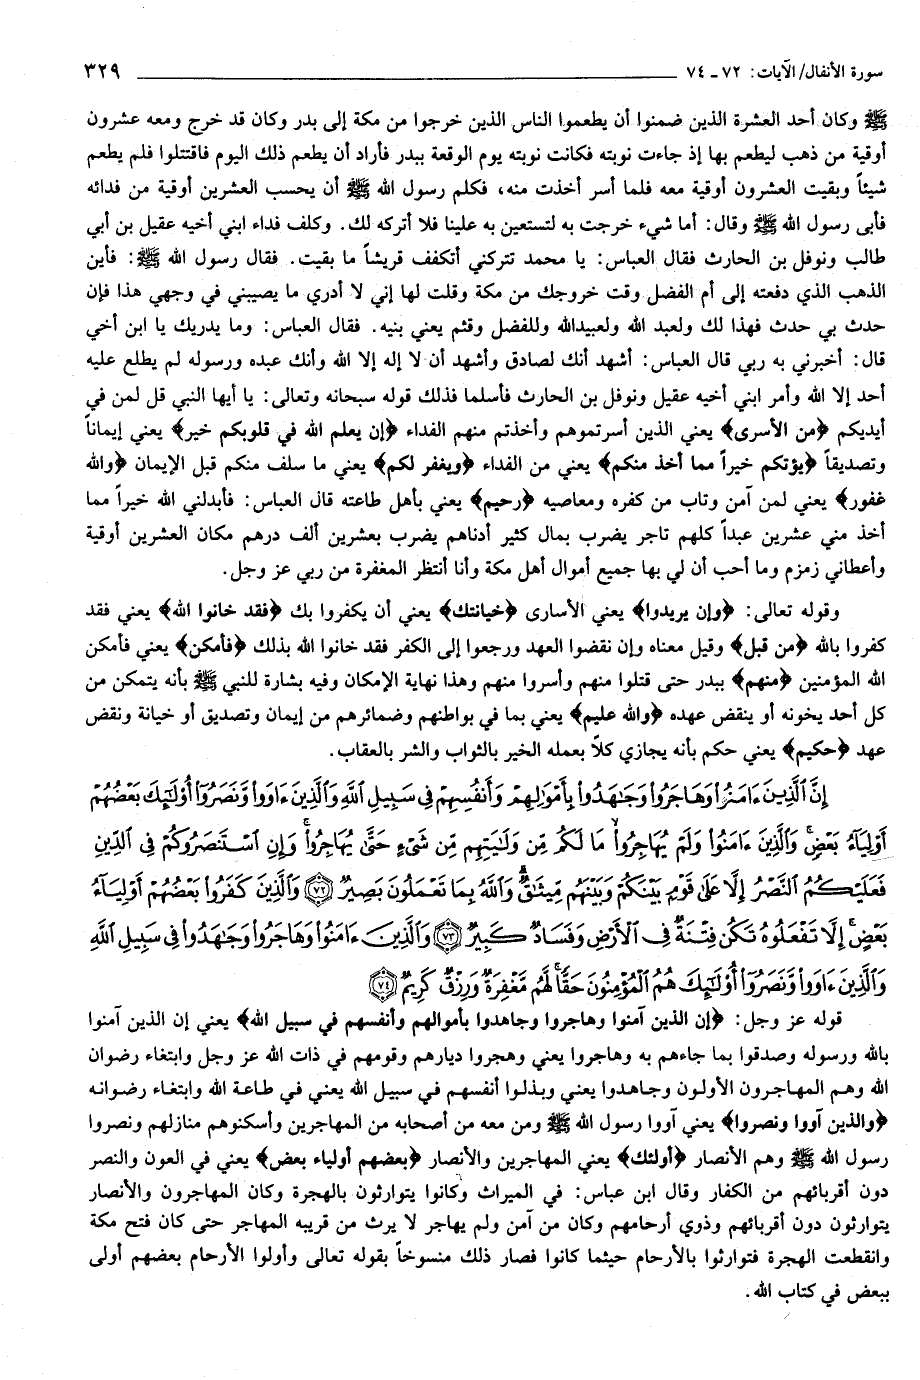 سورة الأنفال/ الآيات: ٧٢ ـ ٧٤ ٣٢٩
ﷺ وكان أحد العشرة الذين ضمنوا أن يطعموا الناس الذين خرجوا من مكة إلى بدر وكان قد خرج ومعه عشرون
أوقية من ذهب ليطعم بها إذ جاءت نوبته فكانت نوبته يوم الوقعة ببدر فأراد أن يطعم ذلك اليوم فاقتتلوا فلم يطعم
شيئاً وبقيت العشرون أوقية معه فلما أسر أخذت منه، فكلم رسول الله ﷺ أن يحسب العشرين أوقية من فدائه
فأبى رسول الله ﷺ وقال: أما شيء خرجت به لتستعين به علينا فلا أتركه لك. وكلف فداء ابني أخيه عقيل بن أبي
طالب ونوفل بن الحارث فقال العباس: يا محمد تتركني أتكفف قريشاً ما بقيت. فقال رسول الله ﷺ: فأين
الذهب الذي دفعته إلى أم الفضل وقت خروجك من مكة وقلت لها إني لا أدري ما يصيبني في وجهي هذا فإن
حدث بي حدث فهذا لك ولعبد الله ولعبيدالله وللفضل وقثم يعني بنيه. فقال العباس: وما يدريك يا ابن أخي
قال: أخبرني به ربي قال العباس: أشهد أنك لصادق وأشهد أن لا إله إلا الله وأنك عبده ورسوله لم يطلع عليه
أحد إلا الله وأمر ابني أخيه عقيل ونوفل بن الحارث فأسلما فذلك قوله سبحانه وتعالى: يا أيها النبي قل لمن في
أيديكم ﴿من الأسرى﴾ يعني الذين أسرتموهم وأخذتم منهم الفداء ﴿إن يعلم الله في قلوبكم خير﴾ يعني إيماناً
وتصديقاً ﴿يؤتكم خيراً مما أخذ منكم﴾ يعني من الفداء ﴿ويغفر لكم﴾ يعني ما سلف منكم قبل الإيمان ﴿والله
غفور﴾ يعني لمن آمن وتاب من كفره ومعاصيه ﴿رحيم﴾ يعني بأهل طاعته قال العباس: فأبدلني الله خيراً مما
أخذ مني عشرين عبداً كلهم تاجر يضرب بمال كثير أدناهم يضرب بعشرين ألف درهم مكان العشرين أوقية
وأعطاني زمزم وما أحب أن لي بها جميع أموال أهل مكة وأنا أنتظر المغفرة من ربي عز وجل.
وقوله تعالى: ﴿وإن يريدوا﴾ يعني الأسارى ﴿خيانتك﴾ يعني أن يكفروا بك ﴿فقد خانوا الله﴾ يعني فقد
كفروا بالله ﴿من قبل﴾ وقيل معناه وإن نقضوا العهد ورجعوا إلى الكفر فقد خانوا الله بذلك ﴿فأمكن﴾ يعني فأمكن
الله المؤمنين ﴿منهم﴾ ببدر حتى قتلوا منهم وأسروا منهم وهذا نهاية الإمكان وفيه بشارة للنبي ﷺ بأنه يتمكن من
كل أحد يخونه أو ينقض عهده ﴿والله عليم﴾ يعني بما في بواطنهم وضمائرهم من إيمان وتصديق أو خيانة ونقض
عهد ﴿حكيم﴾ يعني حكم بأنه يجازي كلاً بعمله الخير بالثواب والشر بالعقاب.
إِنَّ ٱلَّذِينَ ءَامَنُوا۟ وَهَاجَرُوا۟ وَجَٰهَدُوا۟ بِأَمْوَٰلِهِمْ وَأَنفُسِهِمْ فِى سَبِيلِ ٱللَّهِ وَٱلَّذِينَ ءَاوَوا۟ وَّنَصَرُوٓا۟ أُو۟لَٰٓئِكَ بَعْضُهُمْ
أَوْلِيَآءُ بَعْضٍ ۚ وَٱلَّذِينَ ءَامَنُوا۟ وَلَمْ يُهَاجِرُوا۟ مَا لَكُم مِّن وَلَٰيَتِهِم مِّن شَىْءٍ حَتَّىٰ يُهَاجِرُوا۟ ۚ وَإِنِ ٱسْتَنصَرُوكُمْ فِى ٱلدِّينِ
فَعَلَيْكُمُ ٱلنَّصْرُ إِلَّا عَلَىٰ قَوْمٍۭ بَيْنَكُمْ وَبَيْنَهُم مِّيثَٰقٌ ۗ وَٱللَّهُ بِمَا تَعْمَلُونَ بَصِيرٌ ﴿٧٢﴾ وَٱلَّذِينَ كَفَرُوا۟ بَعْضُهُمْ أَوْلِيَآءُ
بَعْضٍ ۚ إِلَّا تَفْعَلُوهُ تَكُن فِتْنَةٌ فِى ٱلْأَرْضِ وَفَسَادٌ كَبِيرٌ ﴿٧٣﴾ وَٱلَّذِينَ ءَامَنُوا۟ وَهَاجَرُوا۟ وَجَٰهَدُوا۟ فِى سَبِيلِ ٱللَّهِ
وَٱلَّذِينَ ءَاوَوا۟ وَّنَصَرُوٓا۟ أُو۟لَٰٓئِكَ هُمُ ٱلْمُؤْمِنُونَ حَقًّا ۚ لَّهُم مَّغْفِرَةٌ وَرِزْقٌ كَرِيمٌ ﴿٧٤﴾
قوله عز وجل: ﴿إن الذين آمنوا وهاجروا وجاهدوا بأموالهم وأنفسهم في سبيل الله﴾ يعني إن الذين آمنوا
بالله ورسوله وصدقوا بما جاءهم به وهاجروا يعني وهجروا ديارهم وقومهم في ذات الله عز وجل وابتغاء رضوان
الله وهم المهاجرون الأولون وجاهدوا يعني وبذلوا أنفسهم في سبيل الله يعني في طاعة الله وابتغاء رضوانه
﴿والذين آووا ونصروا﴾ يعني آووا رسول الله ﷺ ومن معه من أصحابه من المهاجرين وأسكنوهم منازلهم ونصروا
رسول الله ﷺ وهم الأنصار ﴿أولئك﴾ يعني المهاجرين والأنصار ﴿بعضهم أولياء بعض﴾ يعني في العون والنصر
دون أقربائهم من الكفار وقال ابن عباس: في الميراث وكانوا يتوارثون بالهجرة وكان المهاجرون والأنصار
يتوارثون دون أقربائهم وذوي أرحامهم وكان من آمن ولم يهاجر لا يرث من قريبه المهاجر حتى كان فتح مكة
وانقطعت الهجرة فتوارثوا بالأرحام حيثما كانوا فصار ذلك منسوخاً بقوله تعالى وأولوا الأرحام بعضهم أولى
ببعض في كتاب الله.